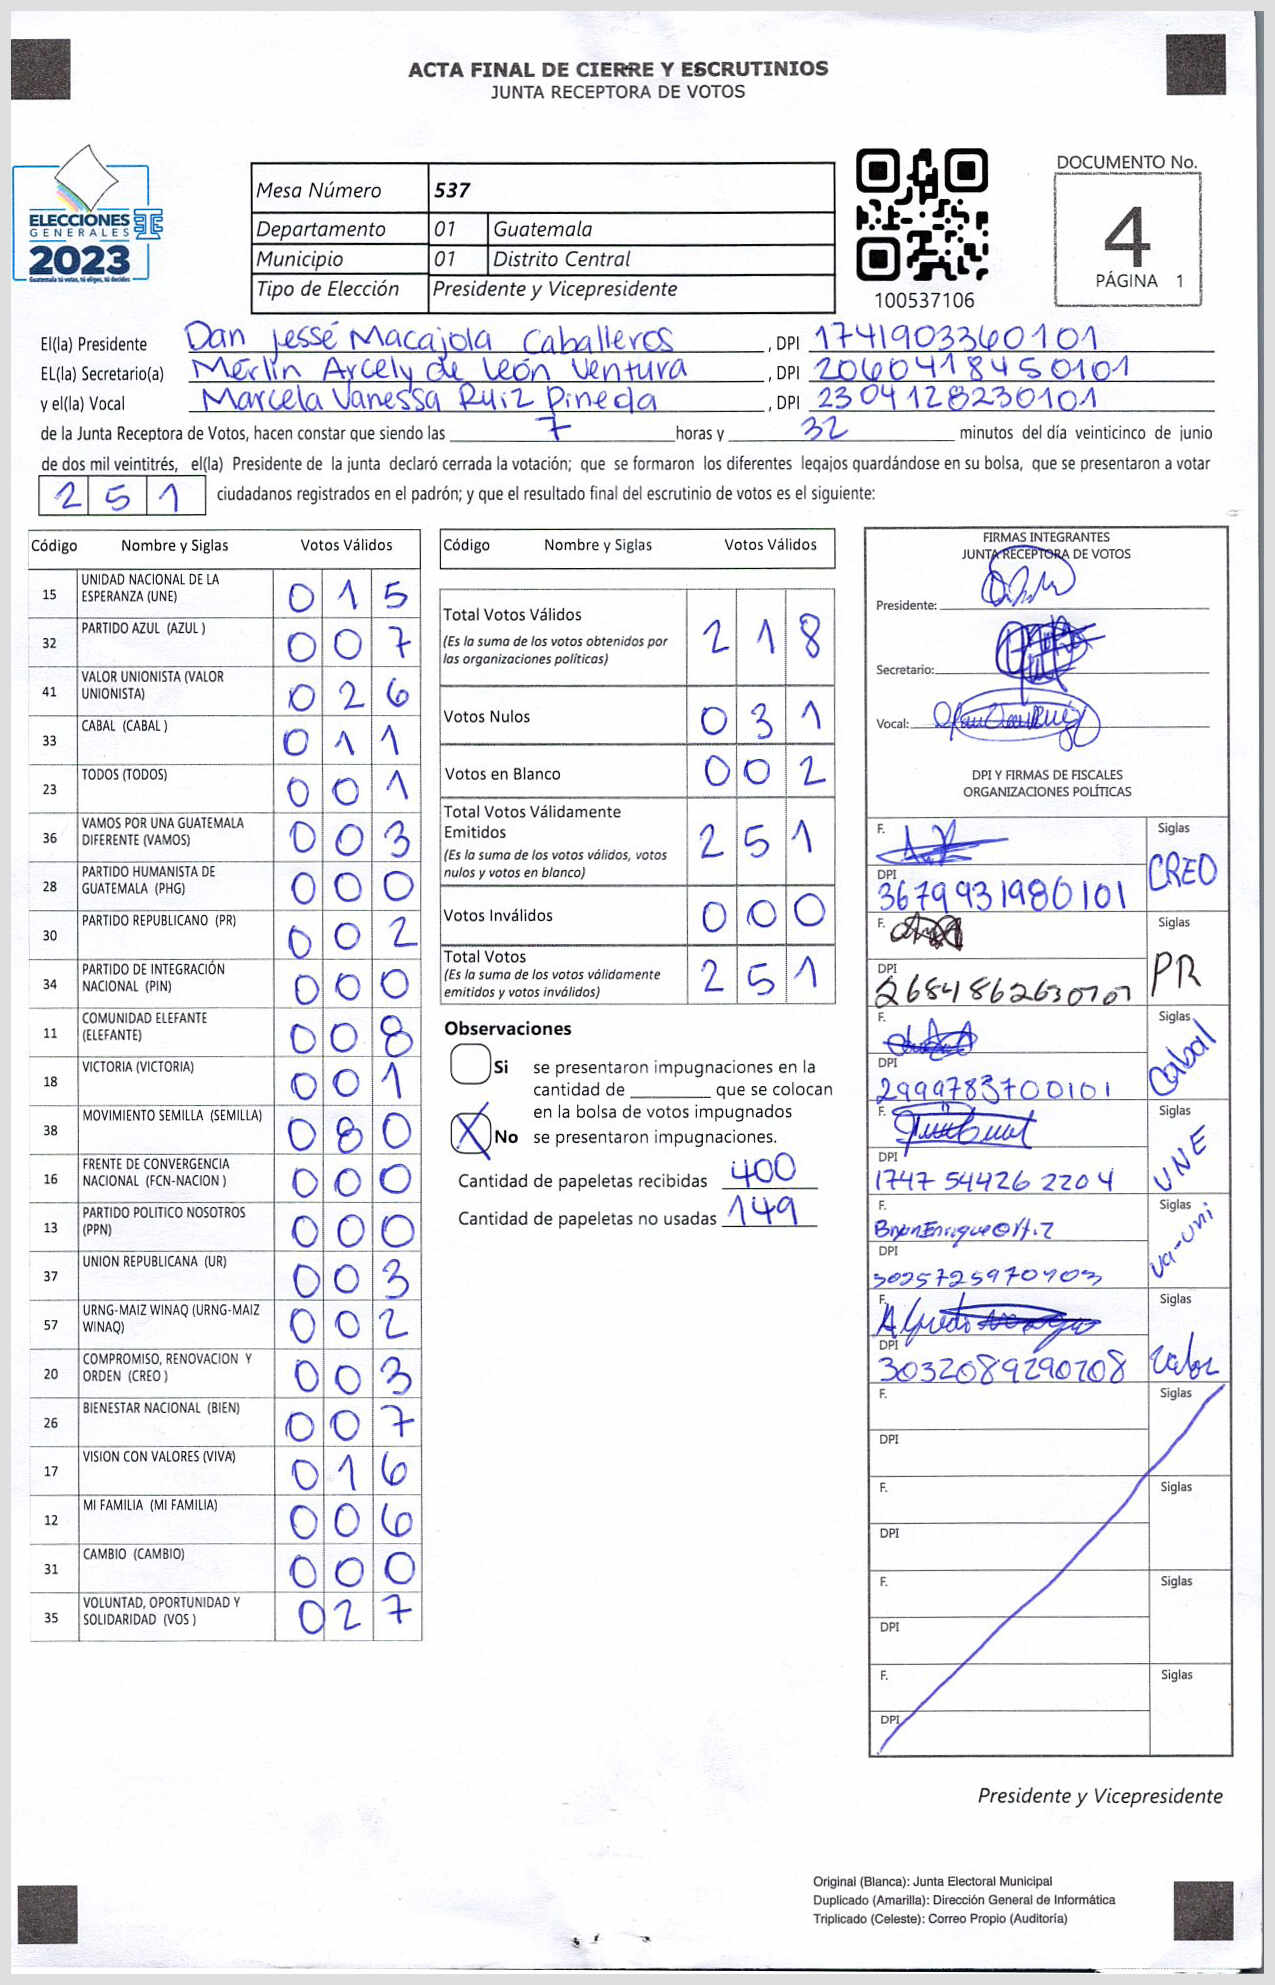 ACTA FINAL DE CIERRE Y ESCRUTINIOS
JUNTA RECEPTORA DE VOTOS
ELECCIONES
GENERALES
2023
Guatemala tú votas, tú eliges, tú decides
Mesa Número 537
Departamento 01 Guatemala
Municipio 01 Distrito Central
Tipo de Elección Presidente y Vicepresidente
100537106
DOCUMENTO No.
4
PÁGINA 1
El(la) Presidente Dan Jessé Macajola Caballeros, DPI 1741903360101
EL(la) Secretario(a) Merlin Arcely de León Ventura, DPI 2060418450101
y el(la) Vocal Marcela Vanessa Ruiz Pineda, DPI 2304128230101
de la Junta Receptora de Votos, hacen constar que siendo las 7 horas y 32 minutos del día veinticinco de junio
de dos mil veintitrés, el(la) Presidente de la junta declaró cerrada la votación; que se formaron los diferentes legajos guardándose en su bolsa, que se presentaron a votar
251 ciudadanos registrados en el padrón; y que el resultado final del escrutinio de votos es el siguiente:
Código Nombre y Siglas Votos Válidos
15 UNIDAD NACIONAL DE LA ESPERANZA (UNE) 015
32 PARTIDO AZUL (AZUL ) 007
41 VALOR UNIONISTA (VALOR UNIONISTA) 026
33 CABAL (CABAL ) 011
23 TODOS (TODOS) 001
36 VAMOS POR UNA GUATEMALA DIFERENTE (VAMOS) 003
28 PARTIDO HUMANISTA DE GUATEMALA (PHG) 000
30 PARTIDO REPUBLICANO (PR) 002
34 PARTIDO DE INTEGRACIÓN NACIONAL (PIN) 000
11 COMUNIDAD ELEFANTE (ELEFANTE) 008
18 VICTORIA (VICTORIA) 001
38 MOVIMIENTO SEMILLA (SEMILLA) 080
16 FRENTE DE CONVERGENCIA NACIONAL (FCN-NACION ) 000
13 PARTIDO POLITICO NOSOTROS (PPN) 000
37 UNION REPUBLICANA (UR) 003
57 URNG-MAIZ WINAQ (URNG-MAIZ WINAQ) 002
20 COMPROMISO, RENOVACION Y ORDEN (CREO ) 003
26 BIENESTAR NACIONAL (BIEN) 007
17 VISION CON VALORES (VIVA) 016
12 MI FAMILIA (MI FAMILIA) 006
31 CAMBIO (CAMBIO) 000
35 VOLUNTAD, OPORTUNIDAD Y SOLIDARIDAD (VOS ) 027
Código Nombre y Siglas Votos Válidos
Total Votos Válidos 218
(Es la suma de los votos obtenidos por
las organizaciones políticas)
Votos Nulos 031
Votos en Blanco 002
Total Votos Válidamente
Emitidos 251
(Es la suma de los votos válidos, votos
nulos y votos en blanco)
Votos Inválidos 000
Total Votos 251
(Es la suma de los votos válidamente
emitidos y votos inválidos)
Observaciones
Si se presentaron impugnaciones en la
cantidad de ________ que se colocan
en la bolsa de votos impugnados
X No se presentaron impugnaciones.
Cantidad de papeletas recibidas 400
Cantidad de papeletas no usadas 149
FIRMAS INTEGRANTES
JUNTA RECEPTORA DE VOTOS
Presidente:
Secretario:
Vocal:
DPI Y FIRMAS DE FISCALES
ORGANIZACIONES POLÍTICAS
F. Siglas
DPI CREO
3679931980101
F. Siglas
DPI PR
2684862630101
F. Siglas
DPI Cabal
2999783700101
F. Siglas
DPI UNE
1747 54426 2204
F. Siglas
Bryan Enrique Ortiz
DPI Va-uni
F. Siglas
Alfredo
DPI Valor
3032089290108
F. Siglas
DPI
F. Siglas
DPI
F. Siglas
DPI
F. Siglas
DPI
Presidente y Vicepresidente
Original (Blanca): Junta Electoral Municipal
Duplicado (Amarilla): Dirección General de Informática
Triplicado (Celeste): Correo Propio (Auditoría)